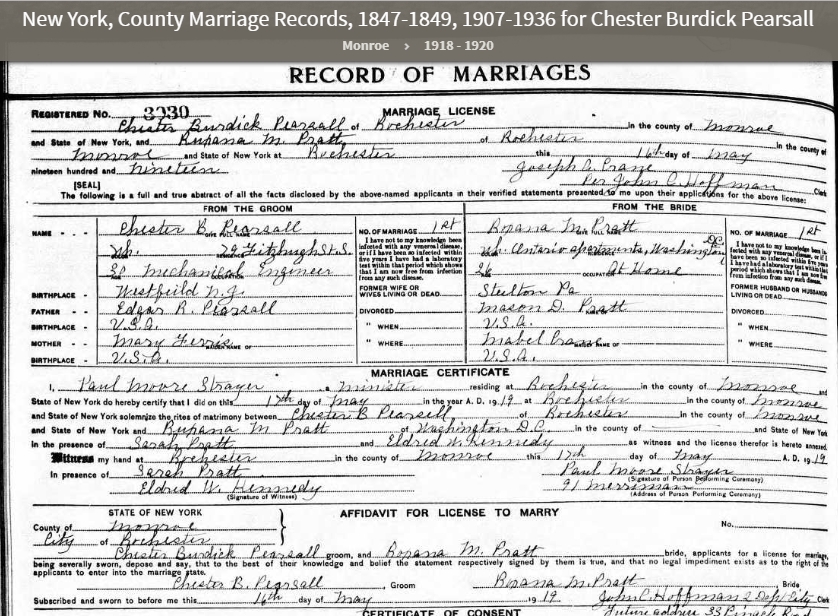 New York, County Marriage Records, 1847-1849, 1907-1936 for Chester Burdick Pearsall
Monroe › 1918 - 1920
RECORD OF MARRIAGES
REGISTERED No. 3930 MARRIAGE LICENSE
Chester Burdick Pearsall of Rochester in the county of Monroe
and State of New York, and M. Pratt of Rochester in the county of
Monroe and State of New York at Rochester this 16th day of May
nineteen hundred and nineteen Joseph A. Crane
[SEAL] Per John C. Hoffman Clerk
The following is a full and true abstract of all the facts disclosed by the above-named applicants in their verified statements presented to me upon their applications for the above license:
FROM THE GROOM FROM THE BRIDE
NAME Chester B. Pearsall NO. OF MARRIAGE 1st M. Pratt NO. OF MARRIAGE 1st
Wh. 29 Fitzhugh St. S. Wh. Ontario apartments, Washington D.C.
Mechanical Engineer OCCUPATION At Home
I have not to my knowledge been infected with any venereal disease, or if I have been so infected within five years I have had a laboratory test within that period which shows that I am now free from infection from any such disease.
BIRTHPLACE Westfield N.J. FORMER WIFE OR WIVES LIVING OR DEAD. Steelton Pa FORMER HUSBAND OR HUSBANDS LIVING OR DEAD.
FATHER Edgar R. Pearsall DIVORCED Mason D. Pratt DIVORCED
BIRTHPLACE U.S.A. " WHEN U.S.A. " WHEN
MOTHER Mary Ferris MAIDEN NAME OF " WHERE Mabel MAIDEN NAME OF " WHERE
BIRTHPLACE U.S.A. U.S.A.
MARRIAGE CERTIFICATE
I, Paul Moore Strayer a minister residing at Rochester in the county of Monroe and
State of New York do hereby certify that I did on this 17th day of May in the year A. D. 1919 at Rochester in the county of Monroe
and State of New York solemnize the rites of matrimony between Chester B Pearsall of Rochester in the county of Monroe
and State of New York and M Pratt of Washington D.C. in the county of and State of New York
in the presence of Sarah Pratt and Eldred W. Kennedy as witness and the license therefor is hereto annexed.
Witness my hand at Rochester in the county of Monroe this 17th day of May A. D. 1919
In presence of Sarah Pratt Paul Moore Strayer
(Signature of Person Performing Ceremony)
Eldred W. Kennedy 91 Merriman
(Signature of Witness) (Address of Person Performing Ceremony)
STATE OF NEW YORK AFFIDAVIT FOR LICENSE TO MARRY No.
County of Monroe
City of Rochester
Chester Burdick Pearsall groom, and M. Pratt bride, applicants for a license for marriage,
being severally sworn, depose and say, that to the best of their knowledge and belief the statement respectively signed by them is true, and that no legal impediment exists as to the right of the
applicants to enter into the marriage state.
Chester B. Pearsall Groom M. Pratt Bride
Subscribed and sworn to before me this 16th day of May 1919 John C. Hoffman Dep. City Clerk
CERTIFICATE OF CONSENT Future address 33